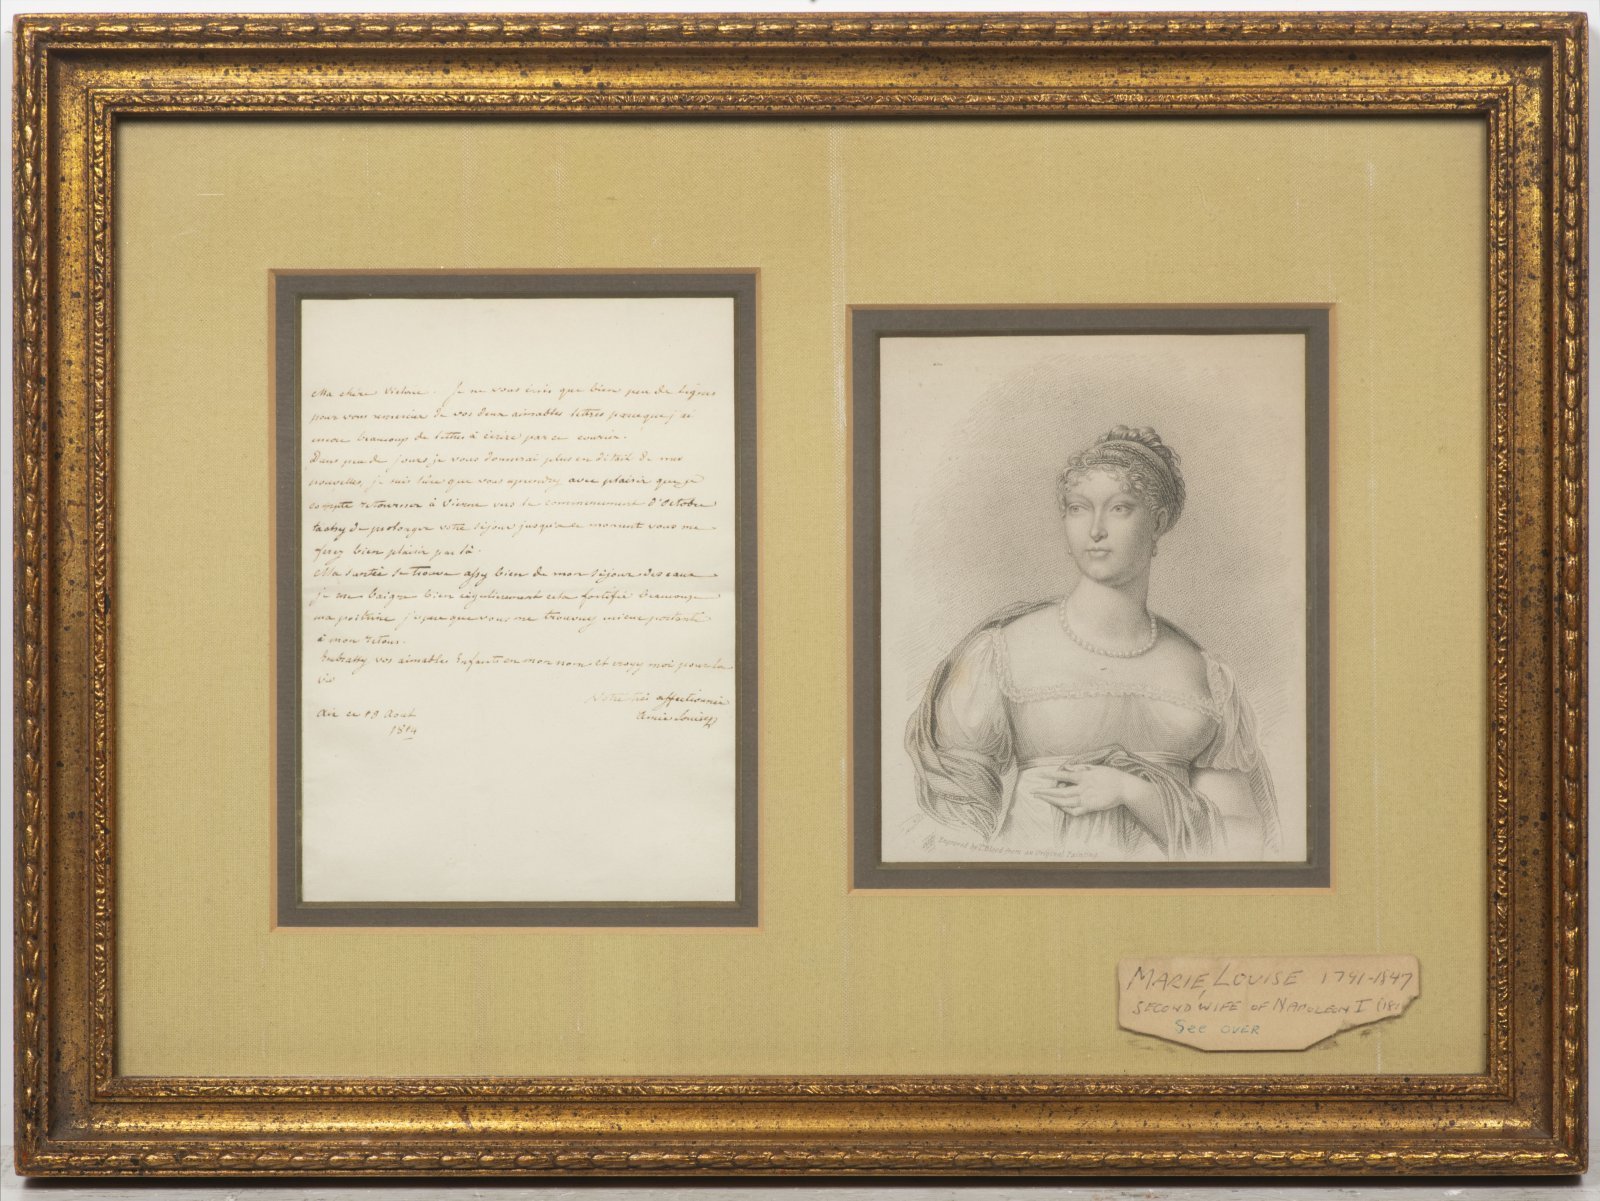 Ma chère Victoire. Je ne vous écris que bien peu de lignes
pour vous remercier de vos deux aimables lettres parceque j'ai
encore beaucoup de lettres à écrire par ce courier.
Dans peu de jours je vous donnerai plus en détail de mes
nouvelles, je suis sûre que vous aprendrez avec plaisir que je
compte retourner à Vienne vers le commencement d'Octobre
tachez de prolonger votre séjour jusqu'a ce moment vous me
ferez bien plaisir par là.
Ma santé se trouve assez bien de mon séjour des eaux
je me baigne bien régulierement cela fortifie beaucoup
ma poitrine j'espere que vous me trouverez mieux portante
à mon retour.
Embrassez vos aimables Enfants en mon nom et croyez moi pour la
vie
Votre très affectionnée
Amie Louise
Aix ce 19 Aout
1814
Engraved by T. Blood from an Original Painting
MARIE LOUISE 1791-1847
SECOND WIFE OF NAPOLEON I (181
See OVER